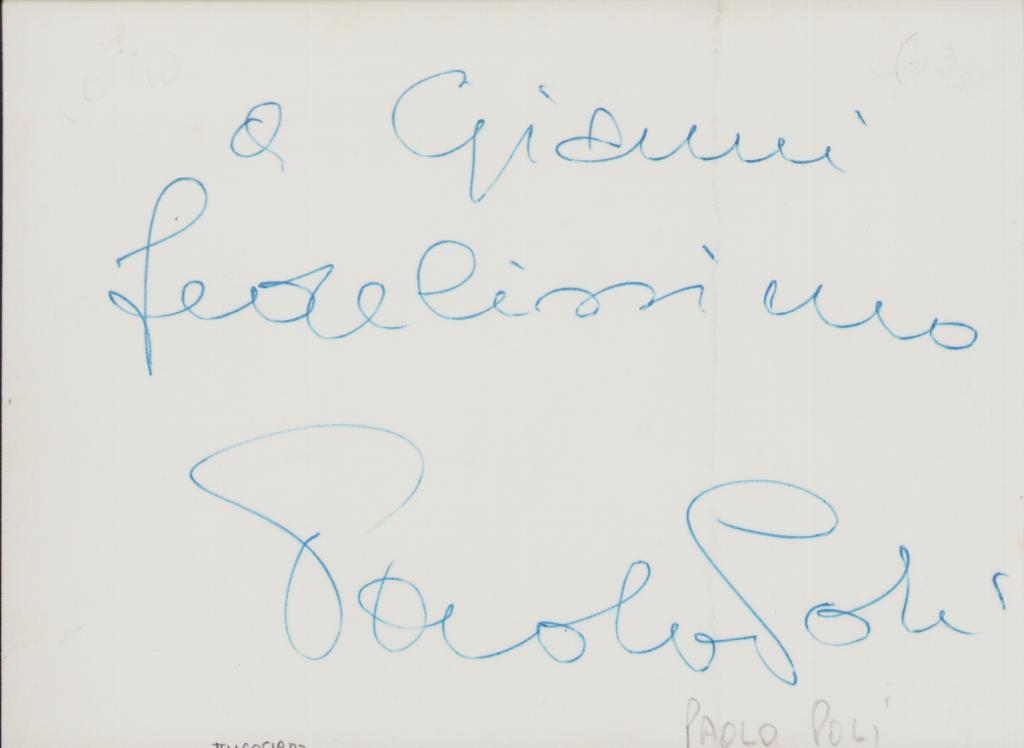 a Gianni
fedelissimo
Paolo Poli
PAOLO POLI